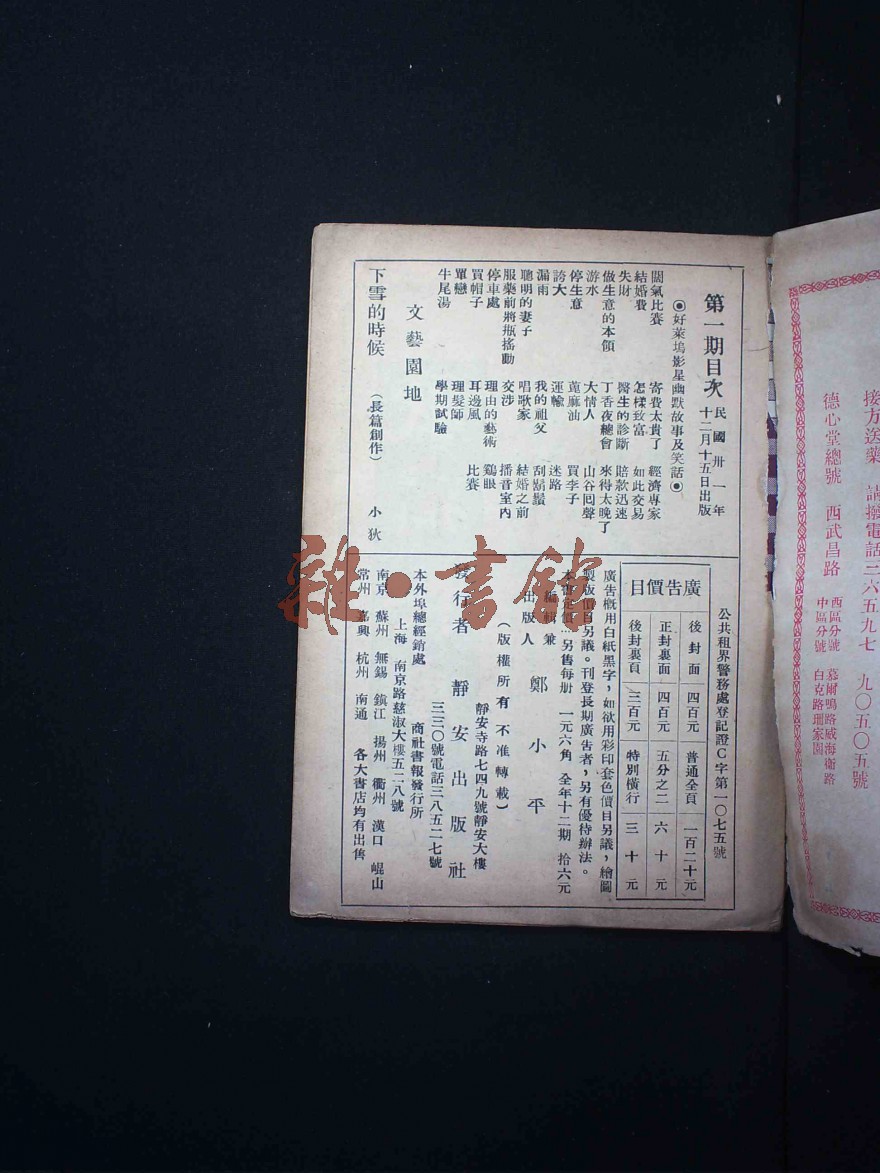 接方送藥 請撥電話三六五九七 九〇五〇五號
德心堂總號 西武昌路
西區分號 慕爾鳴路威海衛路
中區分號 白克路珊家園
第一期目次
民國卅一年
十二月十五日出版
◉好萊塢影星幽默故事及笑話◉
闊氣比賽 寄費太貴了 經濟專家
結婚費 怎樣致富 如此交易
失財 醫生的診斷 賠款迅速
做生意的本領 丁香夜總會 來得太晚了
游水 大情人 山谷囘聲
停生意 蓖麻油 買李子
誇大 運輸 迷路
漏雨 我的祖父 刮鬍鬚
聰明的妻子 唱歌家 結婚之前
服藥前將瓶搖動 交涉 播音室內
停車處 理由的藝術 鷄眼
買帽子 耳邊風 比賽
單戀 理髮師
牛尾湯 學期試驗
文藝園地
下雪的時候 (長篇創作) 小狄
公共租界警務處登記證C字第一〇七五號
廣告價目
後封面 四百元 普通全頁 一百二十元
正封裏面 四百元 五分之二 六十元
後封裏頁 三百元 特別橫行 三十元
廣告概用白紙黑字，如欲用彩印套色價目另議，繪圖
製版價目另議。刊登長期廣告者，另有優待辦法。
本書定價…另售每册 一元六角 全年十二期 拾六元
編輯兼
出版人 鄭小平
(版權所有 不准轉載)
發行者 靜安出版社
靜安寺路七四九號靜安大樓
三三〇號電話三八五二七號
本外埠總經銷處 商社書報發行所
上海 南京路慈淑大樓五二八號
南京 蘇州 無錫 鎮江 揚州 衢州 漢口 崐山
常州 嘉興 杭州 南通 各大書店均有出售
雜·書館